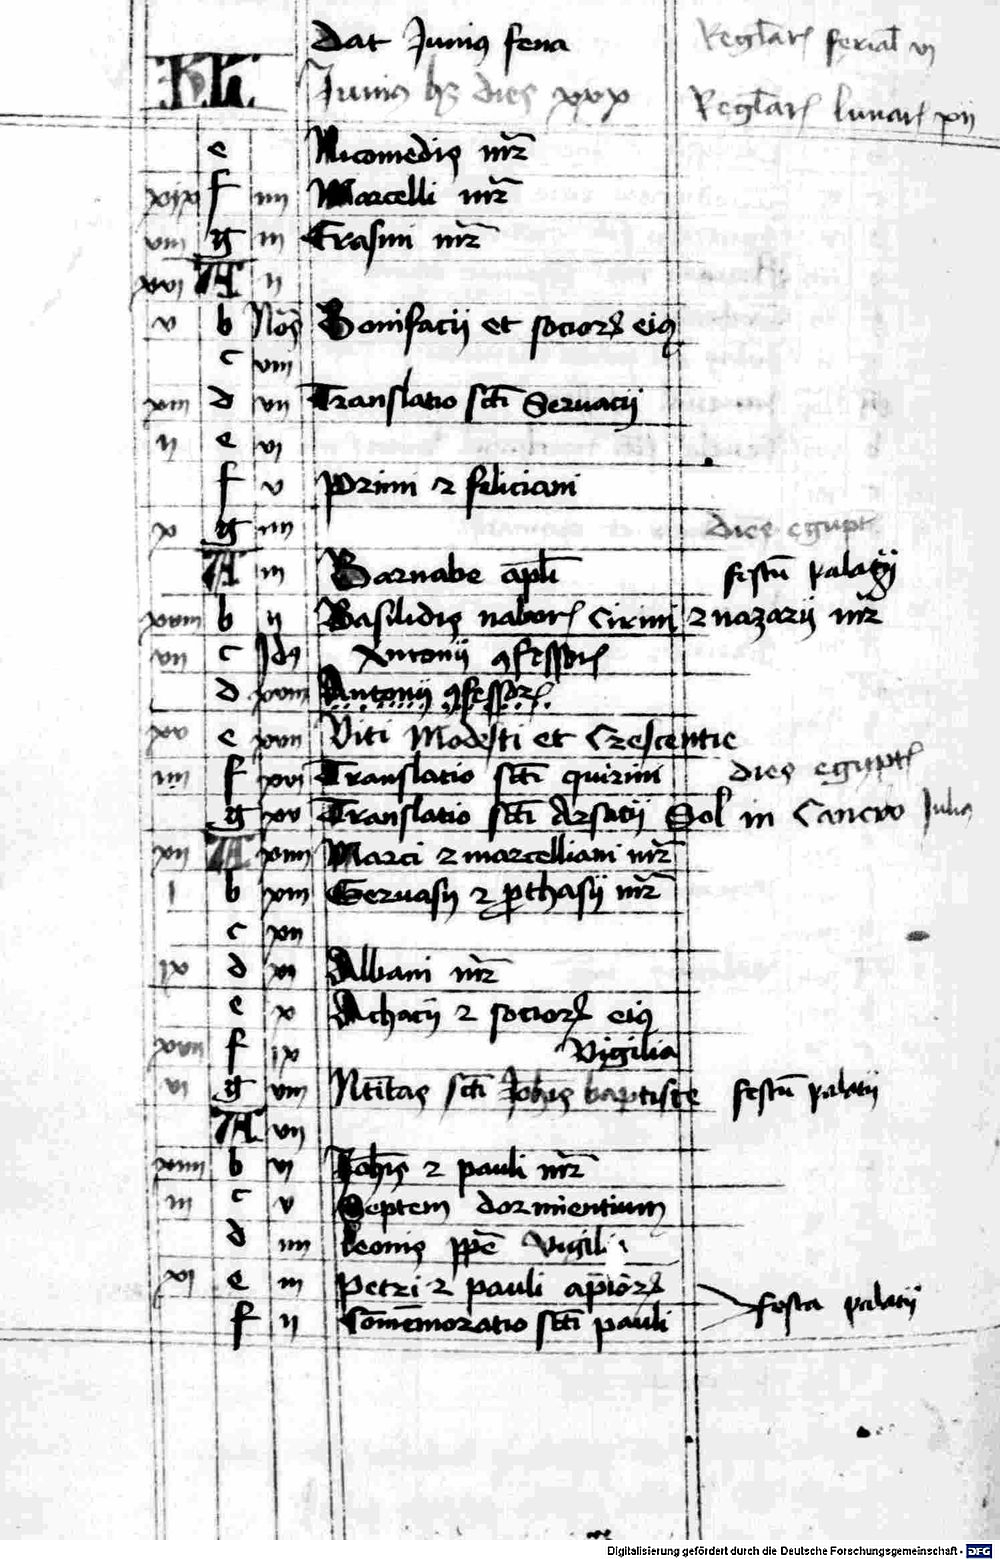 Dat Junius fena Reglar ferial vi
KL Junius hz dies xxx Reglar lunar xii
e Nicomedis mr
xix f iiii Marcelli mr
viii g iii Erasmi mr
xvi A ii
v b Nos Bonifacii et socior eius
c viii
xiii d vii Translatio scti Servacii
ii e vi
f v Primi 2 feliciani
x g iiii dies egipt
A iii Barnabe apli festu palacii
xviii b ii Basilidis nabor Cirini 2 nazarii mr
vii c Idus Antonii 9fessor
d xviii Antonii 9fessor
xv e xvii Viti Modesti et Crescentie
iiii f xvi Translatio scti quirini dies egipt
g xv Translatio scti Arsacii Sol in Cancro Julius
xii A xiiii Marci 2 marcelliani mr
i b xiii Gervasii 2 prthasii mr
c xii
ix d xi Albani mr
e x Achacii 2 socior eius
xvii f ix Vigilia
vi g viii Ntitas scti Johis baptiste festu palacii
A vii
xiiii b vi Johis 2 pauli mr
iii c v Septem dormientium
d iiii Leonis ppe Vigili
xi e iii Petri 2 pauli aptor
f ii Comemoratio scti pauli festa palacii
Digitalisierung gefördert durch die Deutsche Forschungsgemeinschaft - DFG